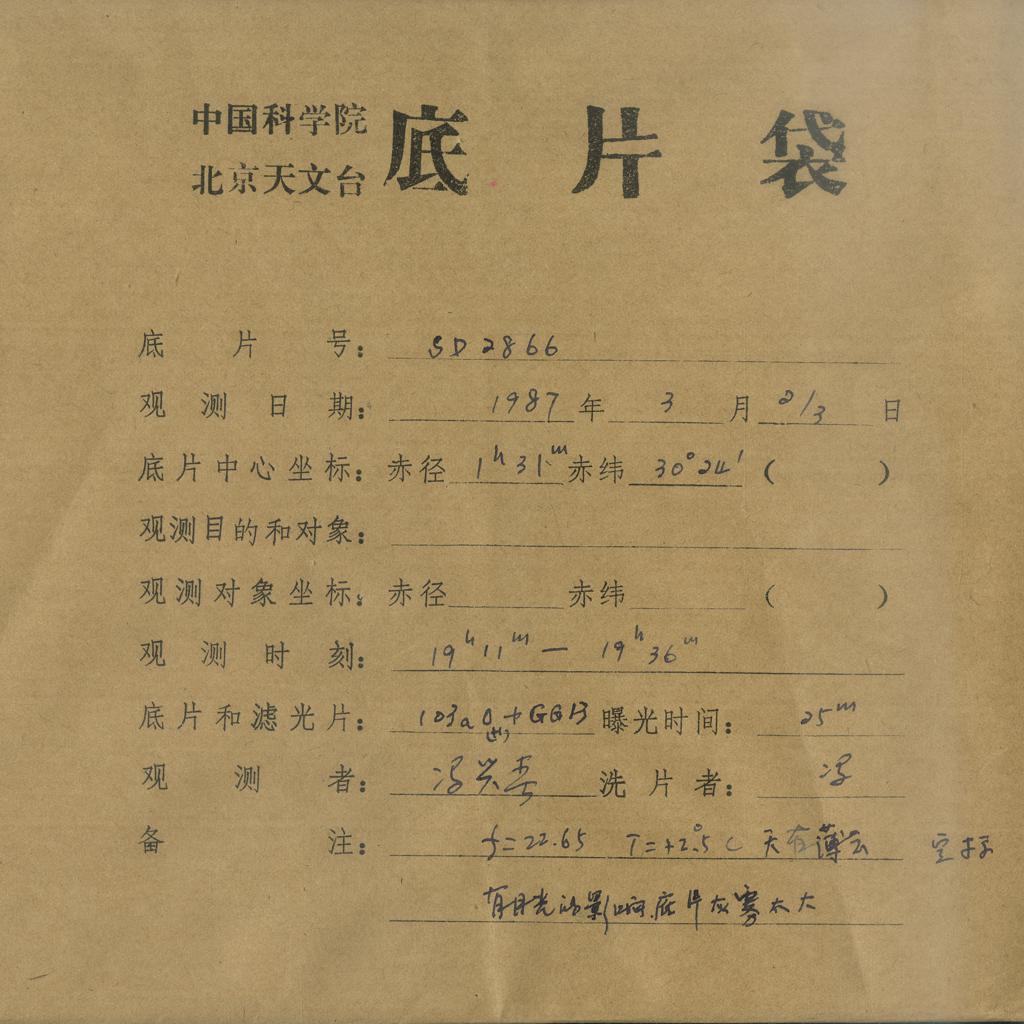 中国科学院
北京天文台
底片袋
底片号: SD2866
观测日期: 1987年 3月 2/3日
底片中心坐标: 赤径 1h31m 赤纬 30°24′ ( )
观测目的和对象:
观测对象坐标: 赤径 赤纬 ( )
观测时刻: 19h11m — 19h36m
底片和滤光片: 103aO+GG13 曝光时间: 25m
观测者: 冯兴春 洗片者: 冯
备注: f=22.65 T=+2°.5C 天有薄云
有月光的影响底片灰雾太大